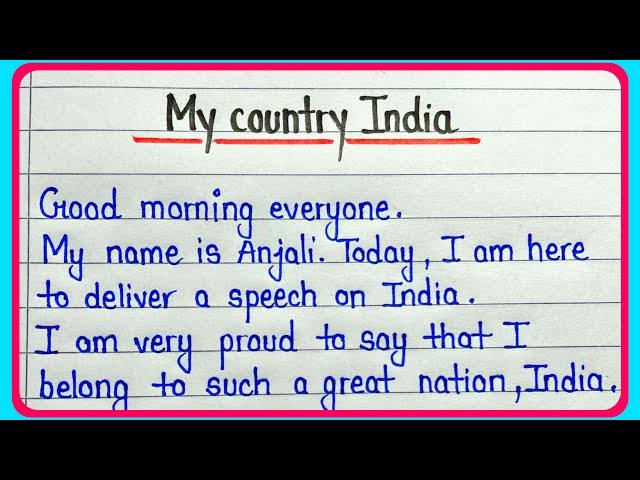 My country India
Good morning everyone.
My name is Anjali. Today, I am here
to deliver a speech on India.
I am very proud to say that I
belong to such a great nation, India.